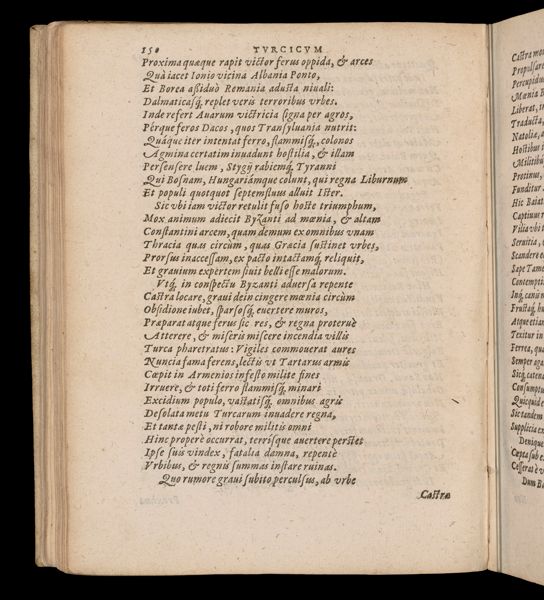 150 TVRCICVM
Proxima quæque rapit victor ferus oppida, & arces
Quà iacet Ionio vicina Albania Ponto,
Et Borea aſsiduò Romania aduſta niuali:
Dalmaticasq́, replet veris terroribus vrbes.
Inde refert Auarum victricia ſigna per agros,
Pérque feros Dacos, quos Tranſyluania nutrit:
Quáque iter intentat ferro, flammisq́, colonos
Agmina certatim inuadunt hoſtilia, & illam
Perſenſere luem, Stygij rabiemq́, Tyranni
Qui Boſnam, Hungariámque colunt, qui regna Liburnum
Et populi quotquot ſeptemfluus alluit Iſter.
Sic vbi iam victor retulit fuſo hoſte triumphum,
Mox animum adiecit Byzanti ad mœnia, & altam
Conſtantini arcem, quam demum ex omnibus vnam
Thracia quas circùm, quas Græcia ſuſtinet vrbes,
Prorſus inacceſſam, ex pacto intactamq́, reliquit,
Et grauium expertem ſiuit belli eſſe malorum.
Vtq́, in conſpectu Byzanti aduerſa repente
Caſtra locare, graui dein cingere mœnia circùm
Obſidione iubet, ſparſosq́, euertere muros,
Præparat atque ferus ſic rei, & regna proteruè
Atterere, & miſeris miſcere incendia villis
Turca pharetratus: Vigiles commouerat aures
Nuncia fama ferens, lectis vt Tartarus armis
Cœpit in Armenios infeſto milite fines
Irruere, & toti ferro flammisq́, minari
Excidium populo, vaſtatisq́, omnibus agris
Deſolata metu Turcarum inuadere regna,
Et tanta peſti, ni robore militis omni
Hinc properè occurrat, terrísque auertere perſtet
Ipſe ſuis vindex, fatalia damna, repentè
Vrbibus, & regnis ſummas inſtare ruinas.
Quo rumore graui ſubitò perculſus, ab vrbe
Caſtra
Caſtra mo
Propulſare
Percupidus
Mœnia B
Liberat, i
Traducta,
Natolia, a
Hoſtibus i
Militibus
Protinus,
Funditur
Hic Baiat
Captiuus
Vilia vbi
Seruitia,
Scandere e
Sæpe Tame
Contemptis
Inq́, canis
Fruſtaq́, hu
Atque etian
Texitur in
Ferrea, qua
Semper aga
Sicq́, catena
Conſumptu
Quicquid e
Sic tandem
Supplicia ex
Denique
Cæpta ſub e
Ceſſerat è v
Dum Ba